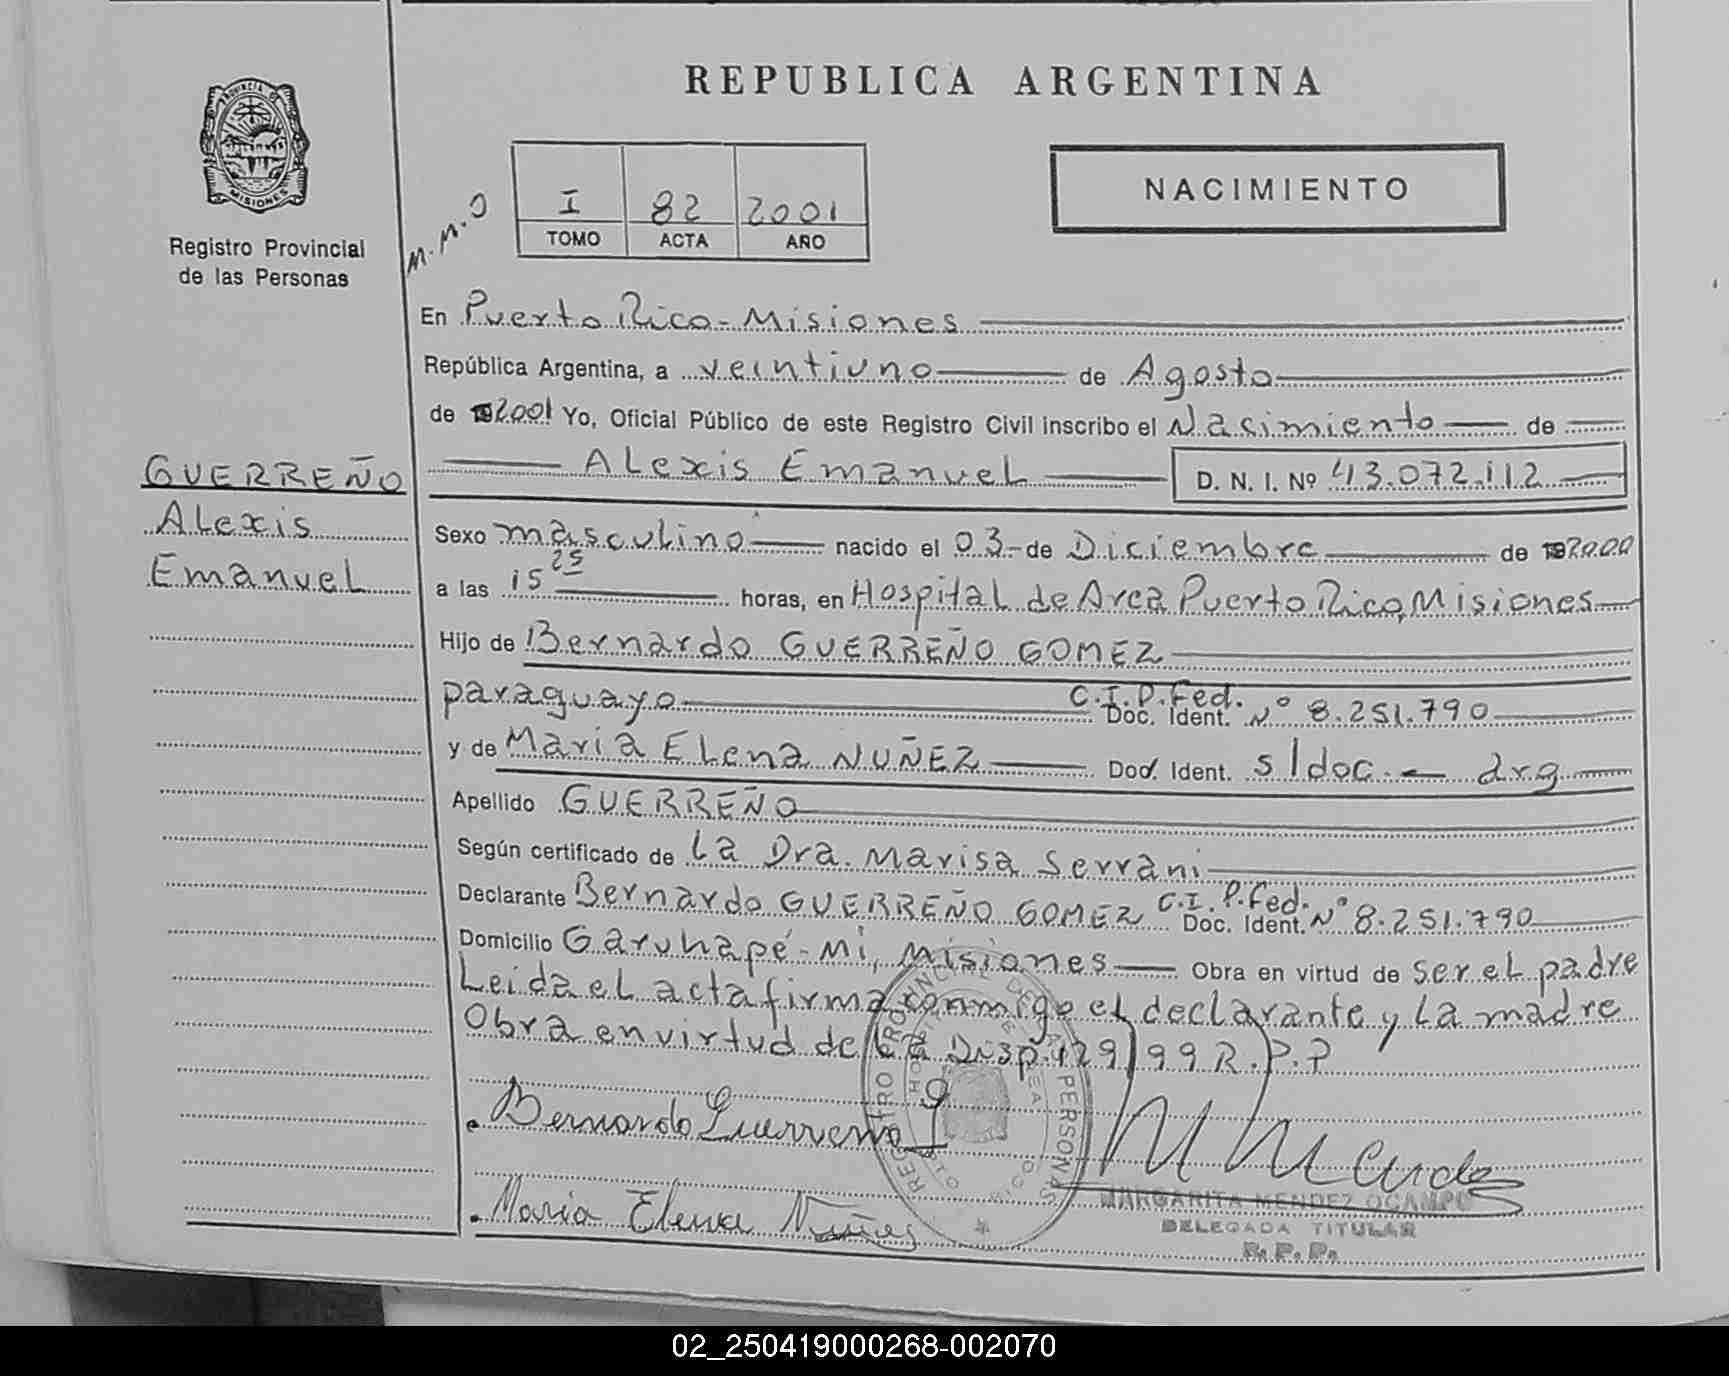 REPUBLICA ARGENTINA
PROVINCIA DE
MISIONES
Registro Provincial
de las Personas
M.M.O
I 82 2001
TOMO ACTA AÑO
NACIMIENTO
En Puerto Rico - Misiones
República Argentina, a veintiuno de Agosto
de 2001 Yo, Oficial Público de este Registro Civil inscribo el Nacimiento de
Alexis Emanuel D. N. I. Nº 43.072.112
GUERREÑO
Alexis
Emanuel
Sexo masculino nacido el 03 - de Diciembre de 2000
a las 15 25 horas, en Hospital de Area Puerto Rico, Misiones
Hijo de Bernardo GUERREÑO GOMEZ
paraguayo C.I.P.Fed. Doc. Ident. Nº 8.251.790
y de Maria Elena NUÑEZ Doc. Ident. s/doc. - arg
Apellido GUERREÑO
Según certificado de la Dra. Marisa Serrani
Declarante Bernardo GUERREÑO GOMEZ C.I.P.Fed. Doc. Ident. Nº 8.251.790
Domicilio Garuhapé - Mi, Misiones Obra en virtud de ser el padre
Leida el acta firma conmigo el declarante y la madre
Obra en virtud de la Disp. 129/99 R.P.P
Bernardo Guerreño G
Maria Elena Nuñez
M Mendez
MARGARITA MENDEZ OCAMPO
DELEGADA TITULAR
R.P.P.
REGISTRO PROVINCIAL DE PERSONAS
02_250419000268-002070